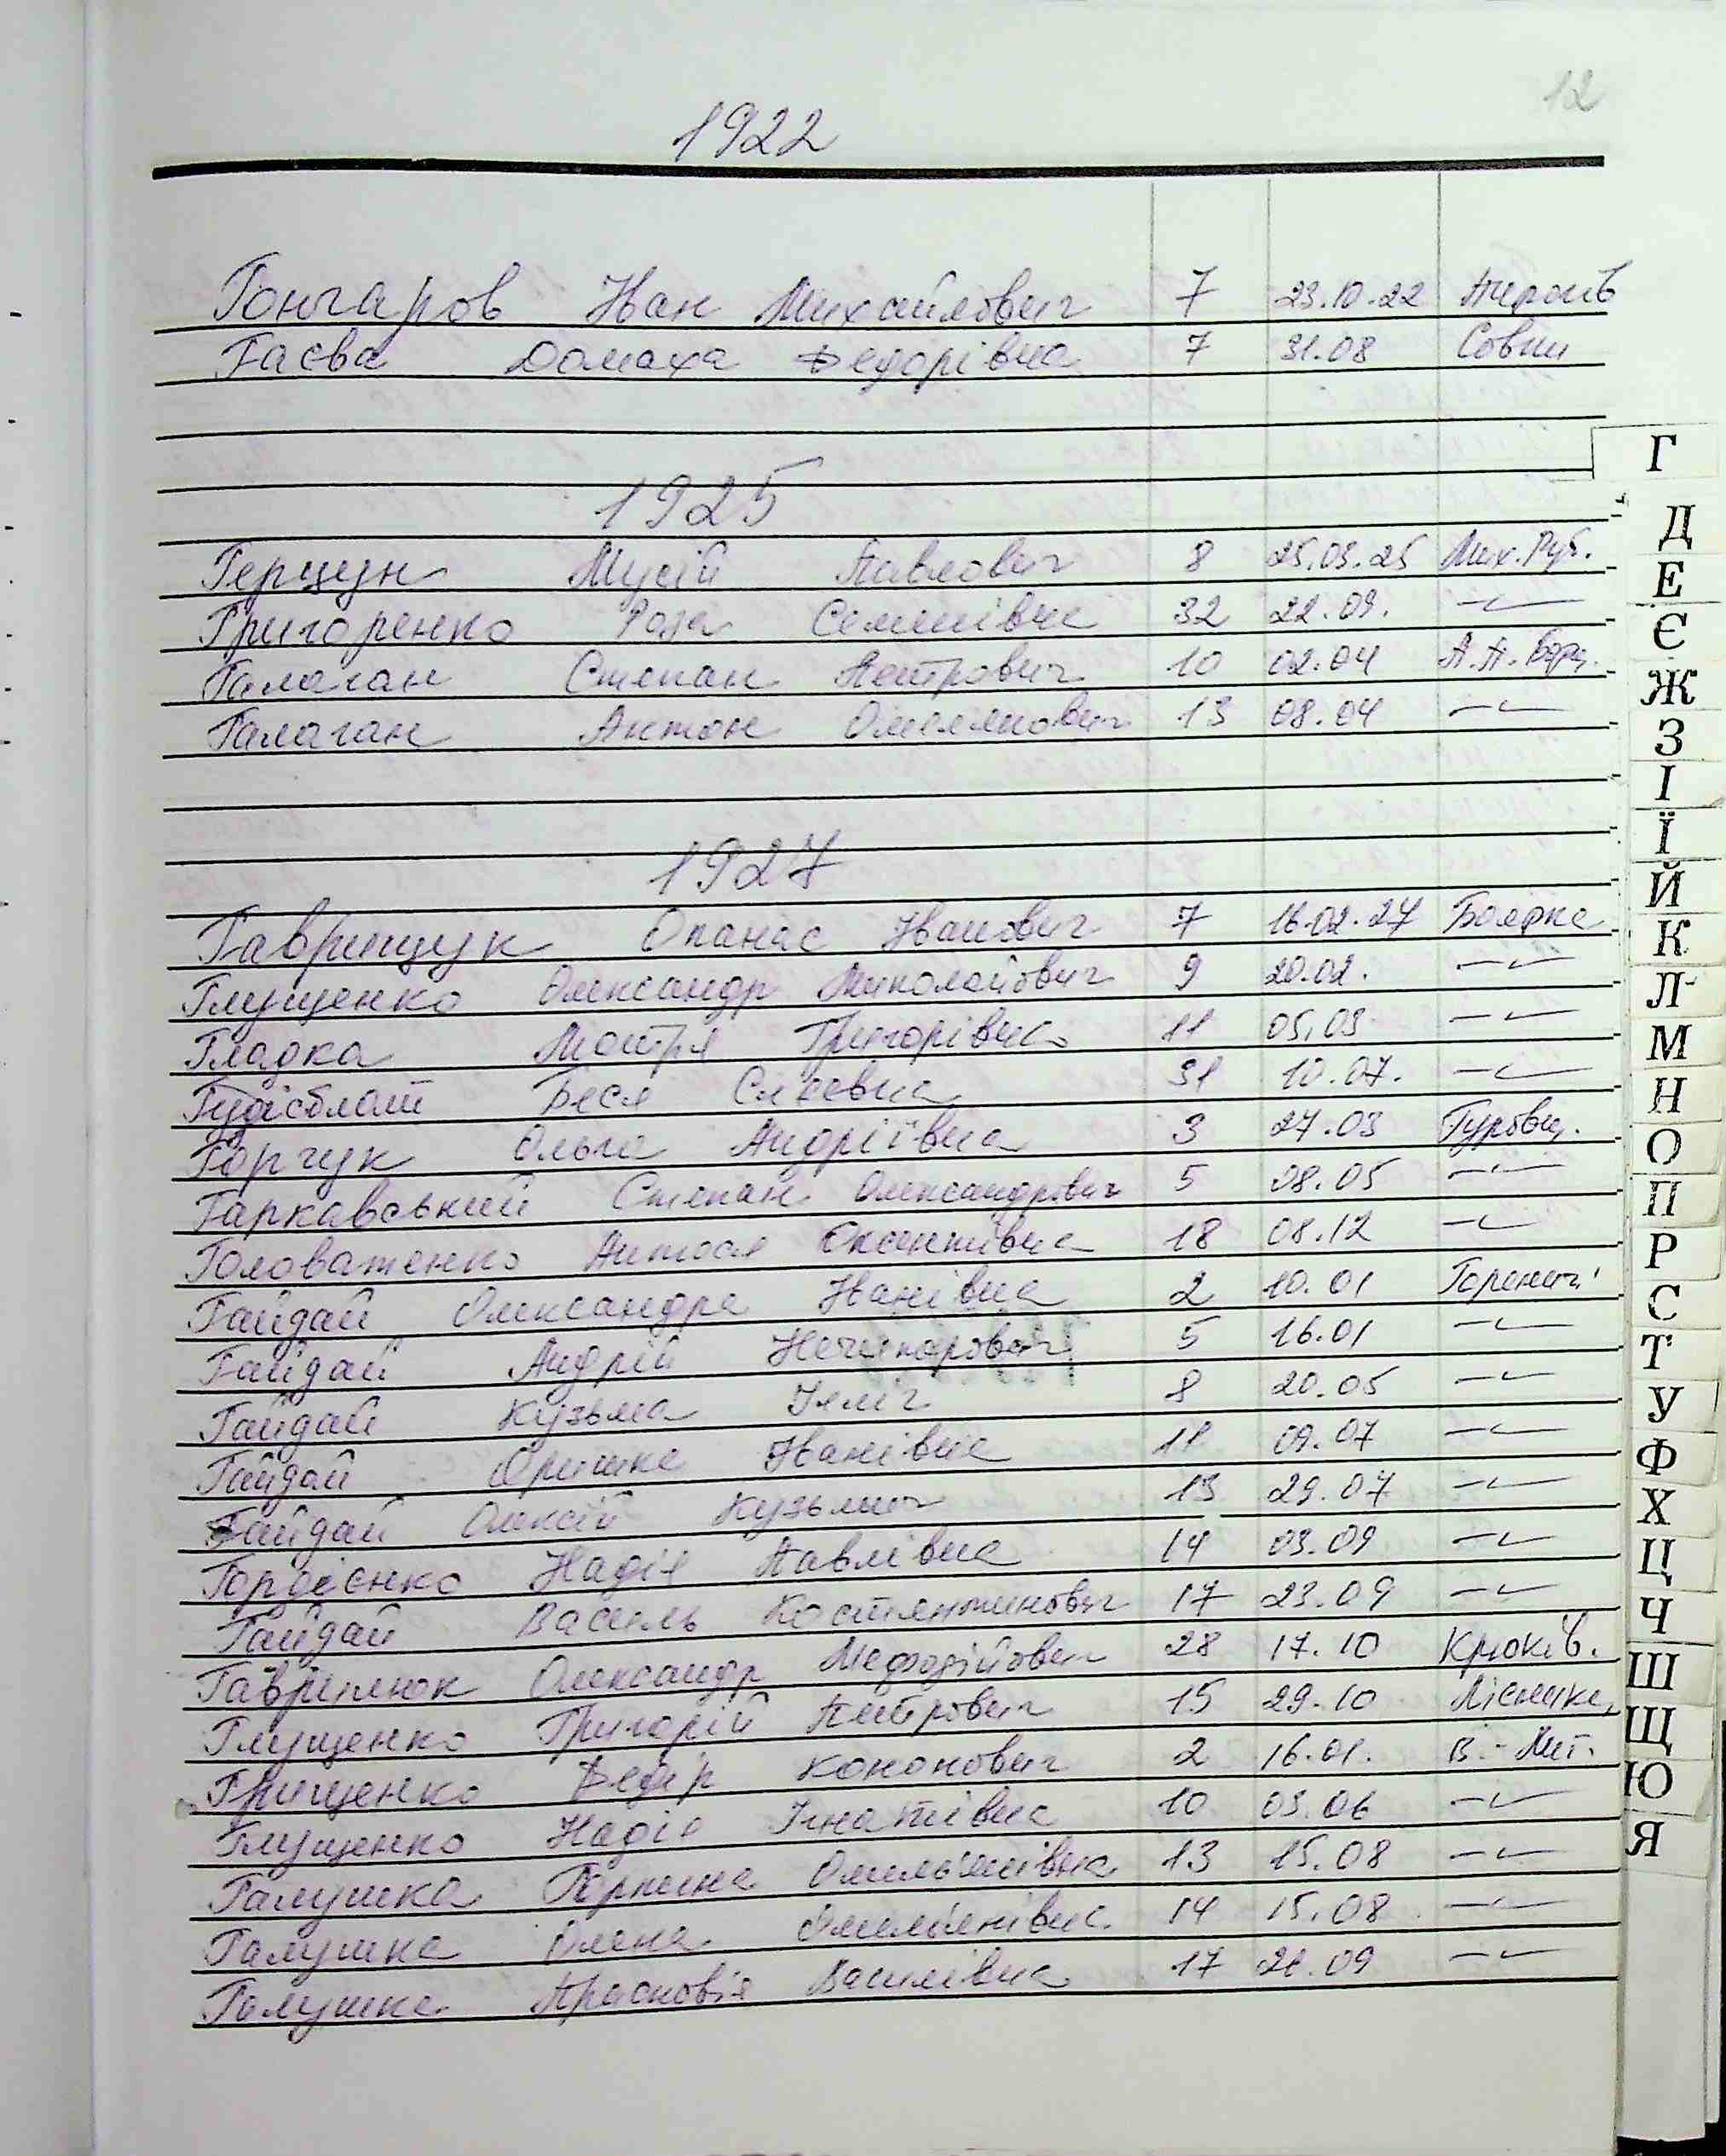 12
1922
Гончаров Іван Михайлович 7 23.10.22 Пирогів
Гаєва Домаха Федорівна 7 31.08 Совки
1925
Герцун Мусій Павлович 8 25.03.25 Мих. Руб.
Григоренко Роза Семенівна 32 22.09. -"-
Галаган Степан Петрович 10 02.04 П.П. Борщ.
Галаган Антон Омелянович 13 08.04 -"-
1927
Гаврищук Опанас Іванович 7 16.02.27 Боярка
Глущенко Олександр Миколайович 9 20.02. -"-
Гладка Мотря Григорівна 11 05.03 -"-
Беся 31 10.07. -"-
Горчук Ольга Андріївна 3 27.03 Гуровщ.
Гаркавський Степан Олександрович 5 08.05 -"-
Головатенко Антося Оксентівна 18 08.12 -"-
Гайдай Олександра Іванівна 2 10.01 Гореничі
Гайдай Андрій Нечипорович 5 16.01 -"-
Гайдай Кузьма Ілліч 8 20.05 -"-
Гайдай Оришка Іванівна 11 09.07 -"-
Гайдай Олексій Кузьмич 13 29.07 -"-
Гордієнко Надія Павлівна 14 03.09 -"-
Гайдай Василь Костянтинович 17 23.09 -"-
Гаврилюк Олександр Мефодійович 28 17.10 Крюків.
Глущенко Григорій Петрович 15 29.10 Лісники
Грищенко Федір Кононович 2 16.01. В.-Лит.
Глущенко Надія Ігнатівна 10 03.06 -"-
Галушка Горпина Омелянівна 13 15.08 -"-
Галушка Олена Омелянівна 14 15.08 -"-
Галушка Прасковія Василівна 17 21.09 -"-
Г
Д
Е
Є
Ж
З
І
Ї
Й
К
Л
М
Н
О
П
Р
С
Т
У
Ф
Х
Ц
Ч
Ш
Щ
Ю
Я